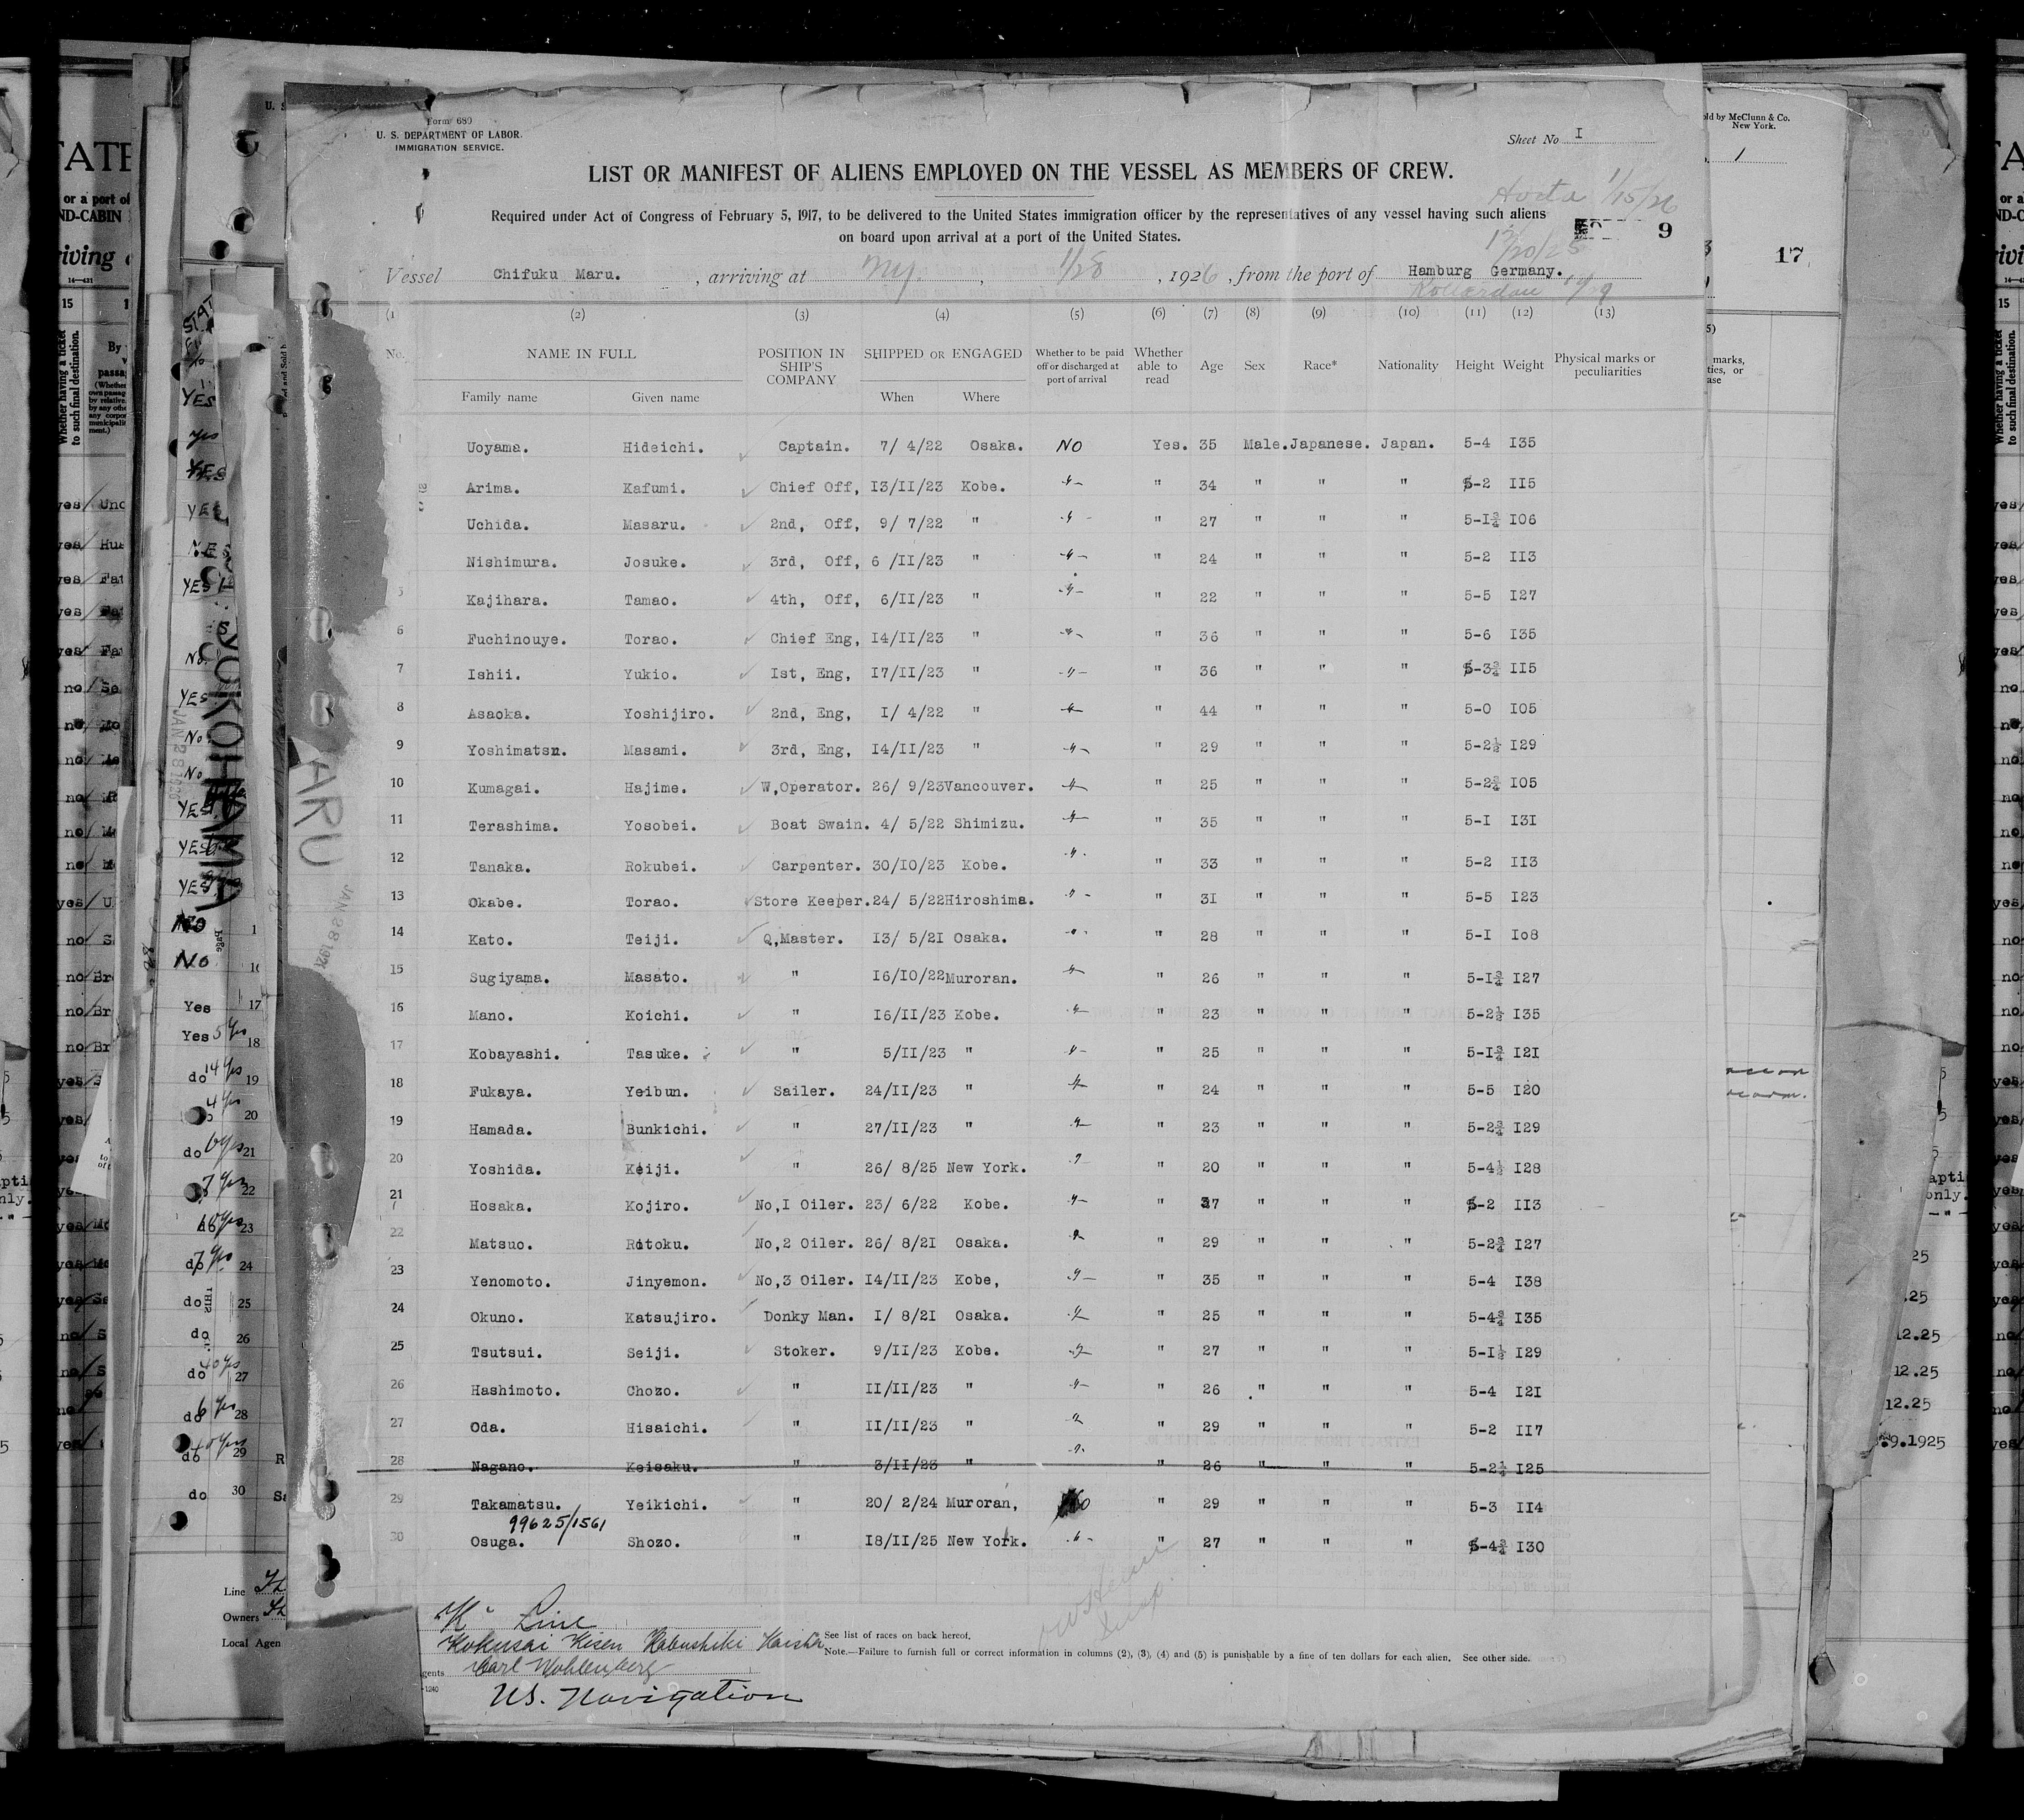 Form 680
U. S. DEPARTMENT OF LABOR
IMMIGRATION SERVICE.
Sheet No I
LIST OR MANIFEST OF ALIENS EMPLOYED ON THE VESSEL AS MEMBERS OF CREW.
Horta 1/15/26
Required under Act of Congress of February 5, 1917, to be delivered to the United States immigration officer by the representatives of any vessel having such aliens
on board upon arrival at a port of the United States.
9
12/20/25
Vessel Chifuku Maru. , arriving at NY. , 1/28 , 1926, from the port of Hamburg Germany.
(1 (2) (3) (4) (5) (6) (7) (8) (9) (10) (11) (12) (13)
No. NAME IN FULL POSITION IN SHIP'S COMPANY SHIPPED OR ENGAGED Whether to be paid off or discharged at port of arrival Whether able to read Age Sex Race* Nationality Height Weight Physical marks or peculiarities
Family name Given name When Where
1 Uoyama. Hideichi. Captain. 7/ 4/22 Osaka. NO Yes. 35 Male. Japanese. Japan. 5-4 I35
Arima. Kafumi. Chief Off, I3/II/23 Kobe. " " 34 " " " 5-2 II5
Uchida. Masaru. 2nd, Off, 9/ 7/22 " " " 27 " " " 5-I¾ I06
Nishimura. Josuke. 3rd, Off, 6 /II/23 " " " 24 " " " 5-2 II3
5 Kajihara. Tamao. 4th, Off, 6/II/23 " " " 22 " " " 5-5 I27
6 Fuchinouye. Torao. Chief Eng, I4/II/23 " " " 36 " " " 5-6 I35
7 Ishii. Yukio. Ist, Eng, I7/II/23 " " " 36 " " " 5-3¾ II5
8 Asaoka. Yoshijiro. 2nd, Eng, I/ 4/22 " " " 44 " " " 5-0 I05
9 Yoshimatsu. Masami. 3rd, Eng, I4/II/23 " " " 29 " " " 5-2½ I29
10 Kumagai. Hajime. W,Operator. 26/ 9/23 Vancouver. " " 25 " " " 5-2¾ I05
11 Terashima. Yosobei. Boat Swain. 4/ 5/22 Shimizu. " " 35 " " " 5-I I3I
12 Tanaka. Rokubei. Carpenter. 30/I0/23 Kobe. " " 33 " " " 5-2 II3
13 Okabe. Torao. Store Keeper. 24/ 5/22 Hiroshima. " " 3I " " " 5-5 I23
14 Kato. Teiji. Q,Master. I3/ 5/2I Osaka. " " 28 " " " 5-I Io8
15 Sugiyama. Masato. " I6/I0/22 Muroran. " " 26 " " " 5-I¾ I27
16 Mano. Koichi. " I6/II/23 Kobe. " " 23 " " " 5-2½ I35
17 Kobayashi. Tasuke. " 5/II/23 " " " 25 " " " 5-I¾ I2I
18 Fukaya. Yeibun. Sailer. 24/II/23 " " " 24 " " " 5-5 I20
19 Hamada. Bunkichi. " 27/II/23 " " " 23 " " " 5-2¾ I29
20 Yoshida. Keiji. " 26/ 8/25 New York. " " 20 " " " 5-4½ I28
21 Hosaka. Kojiro. No,I Oiler. 23/ 6/22 Kobe. " " 37 " " " 5-2 II3
22 Matsuo. Ritoku. No,2 Oiler. 26/ 8/2I Osaka. " " 29 " " " 5-2¾ I27
23 Yenomoto. Jinyemon. No,3 Oiler. I4/II/23 Kobe, " " 35 " " " 5-4 I38
24 Okuno. Katsujiro. Donky Man. I/ 8/2I Osaka. " " 25 " " " 5-4¾ I35
25 Tsutsui. Seiji. Stoker. 9/II/23 Kobe. " " 27 " " " 5-I½ I29
26 Hashimoto. Chozo. " II/II/23 " " " 26 " " " 5-4 I2I
27 Oda. Hisaichi. " II/II/23 " " " 29 " " " 5-2 II7
28 Nagano. Keisaku. " 3/II/23 " " " 26 " " " 5-2¼ I25
29 Takamatsu. Yeikichi. " 20/ 2/24 Muroran, No " 29 " " " 5-3 II4
99625/1561
30 Osuga. Shozo. " I8/II/25 New York. " " 27 " " " 5-4¾ I30
"K" Line
Kokusai Kisen Kabushiki Kaisha
See list of races on back hereof.
Note.—Failure to furnish full or correct information in columns (2), (3), (4) and (5) is punishable by a fine of ten dollars for each alien. See other side.
agents Carl Wohlenberg
US. Navigation
ARU
JAN 28 192
YOKOHAMA
JAN 28 1926
Line
Owners
Local Agen
ld by McClunn & Co.
New York.
1
17
12.25
12.25
12.25
9.1925